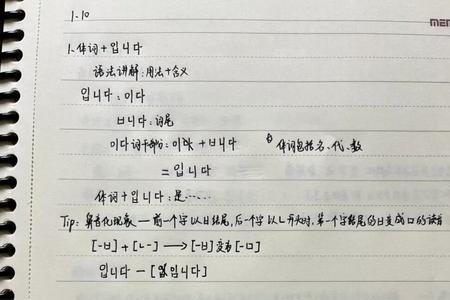 1.10
MEM
1.体词+입니다
语法讲解:用法+含义
입니다:이다
ㅂ니다:词尾
이다词干部分:이다+ㅂ니다 体词包括名、代、数
=입니다
体词+입니다:是……
Tip:鼻音化现象—前一个字以ㅂ结尾,后一个字以ㄴ开头时,第一个字结尾的ㅂ变成ㅁ的读音
[-ㅂ]+[ㄴ-]→[-ㅂ]变为[-ㅁ]
입니다—[임니다]